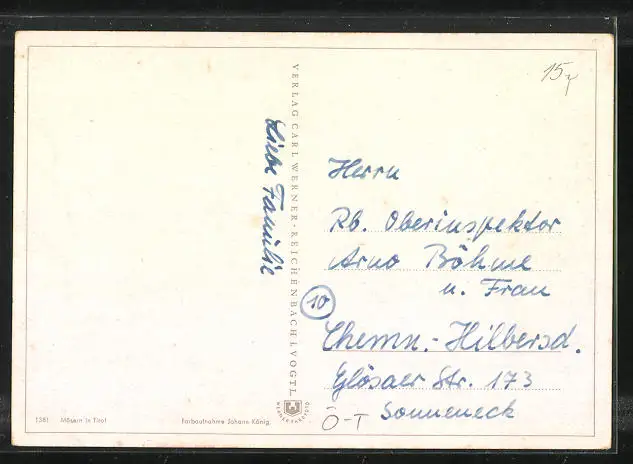 15
VERLAG CARL WERNER · REICHENBACH I. VOGTL.
Liebe Familie
Herrn
Rb. Oberinspektor
Arno Böhme
u. Frau
10
Chemn.-Hilbersd.
Glösaer Str. 173
Sonneneck
Ö-T
1381 Mösern in Tirol
Farbaufnahme Johann König